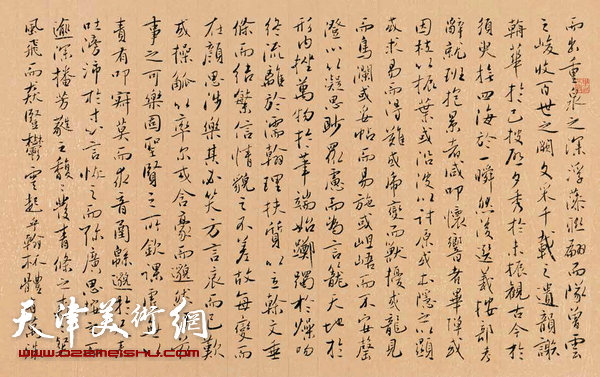 而出重泉之深浮藻聯翩而隊曾雲
之峻收百世之闕文采千載之遺韻謝
朝華於已披啟夕秀於未振觀古今於
須臾撫四海於一瞬然後選義按部考
辭就班抱景者咸叩懷響者畢彈或
因枝以振葉或沿波以討源或本隱以之顯
或求易而得難或虎變而獸擾或龍見
而鳥瀾或妥帖而易施或岨峿而不安罄
澄心以凝思眇眾慮而為言籠天地於
形內挫萬物於筆端始躑躅於燥吻
終流離於濡翰理扶質以立幹文垂
條而結繁信情貌之不差故每變而
在顏思涉樂其必笑方言哀而已歎
或操觚以率爾或含豪而邈然
事之可樂固聖賢之所欽課虛
責有叩寂莫而求音函緜邈於
吐滂沛於寸心言恢之而彌廣思按之
逾深播芳蕤之馥馥發青條之
風飛而猋豎鬱雲起乎翰林體 殊
天津美術網
www.022meishu.com